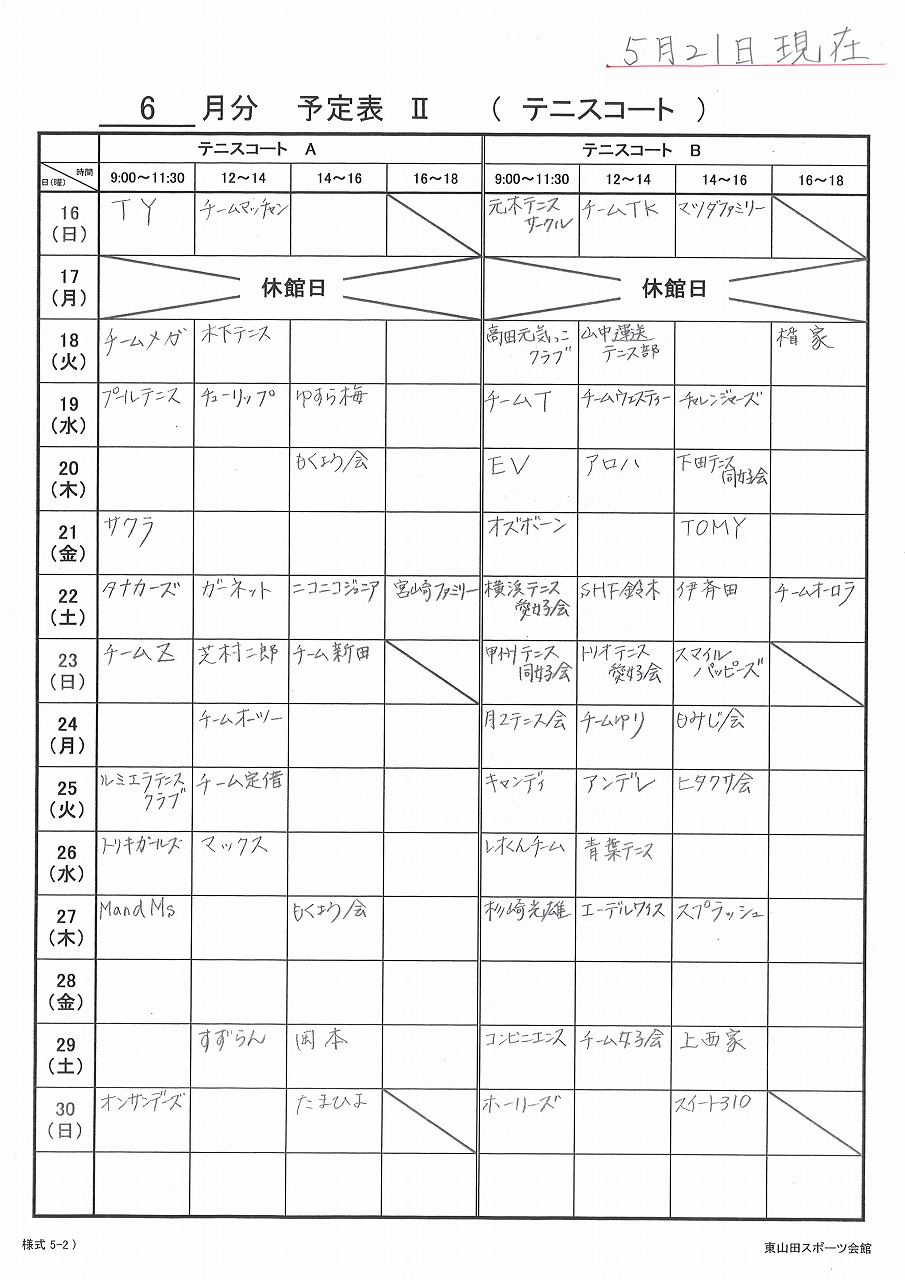 5月21日現在
6 月分 予定表 Ⅱ ( テニスコート )
テニスコート A テニスコート B
時間
日(曜) 9:00～11:30 12～14 14～16 16～18 9:00～11:30 12～14 14～16 16～18
16 TY チームマッチャン 元木テニス チームTK マツダファミリー
(日) サークル
17 休館日 休館日
(月)
18 チームメガ 木下テニス 高田元気っこ 山中運送 楢家
(火) クラブ テニス部
19 プールテニス チューリップ ゆすら梅 チームT チームウェスティー チャレンジャーズ
(水)
20 もくよう会 EV アロハ 下田テニス
(木) 同好会
21 サクラ オズボーン TOMY
(金)
22 タナカーズ ガーネット ニコニコジュニア 宮崎ファミリー 横浜テニス SHF鈴木 伊斉田 チームオーロラ
(土) 愛好会
23 チームZ 芝村二郎 チーム新田 甲州テニス トリオテニス スマイル
(日) 同好会 愛好会 パッピーズ
24 チームオーツー 月2テニス会 チームゆり もみじ会
(月)
25 ルミエラテニス チーム定借 キャンディ アンデレ ヒタクサ会
(火) クラブ
26 トリキガールズ マックス レオくんチーム 青葉テニス
(水)
27 Mand Ms もくよう会 杉崎光雄 エーデルワイス スプラッシュ
(木)
28
(金)
29 すずらん 岡本 コンビニエンス チーム女子会 上西家
(土)
30 オンサンデーズ たまひよ ホーリーズ スイート310
(日)
様式 5-2） 東山田スポーツ会館